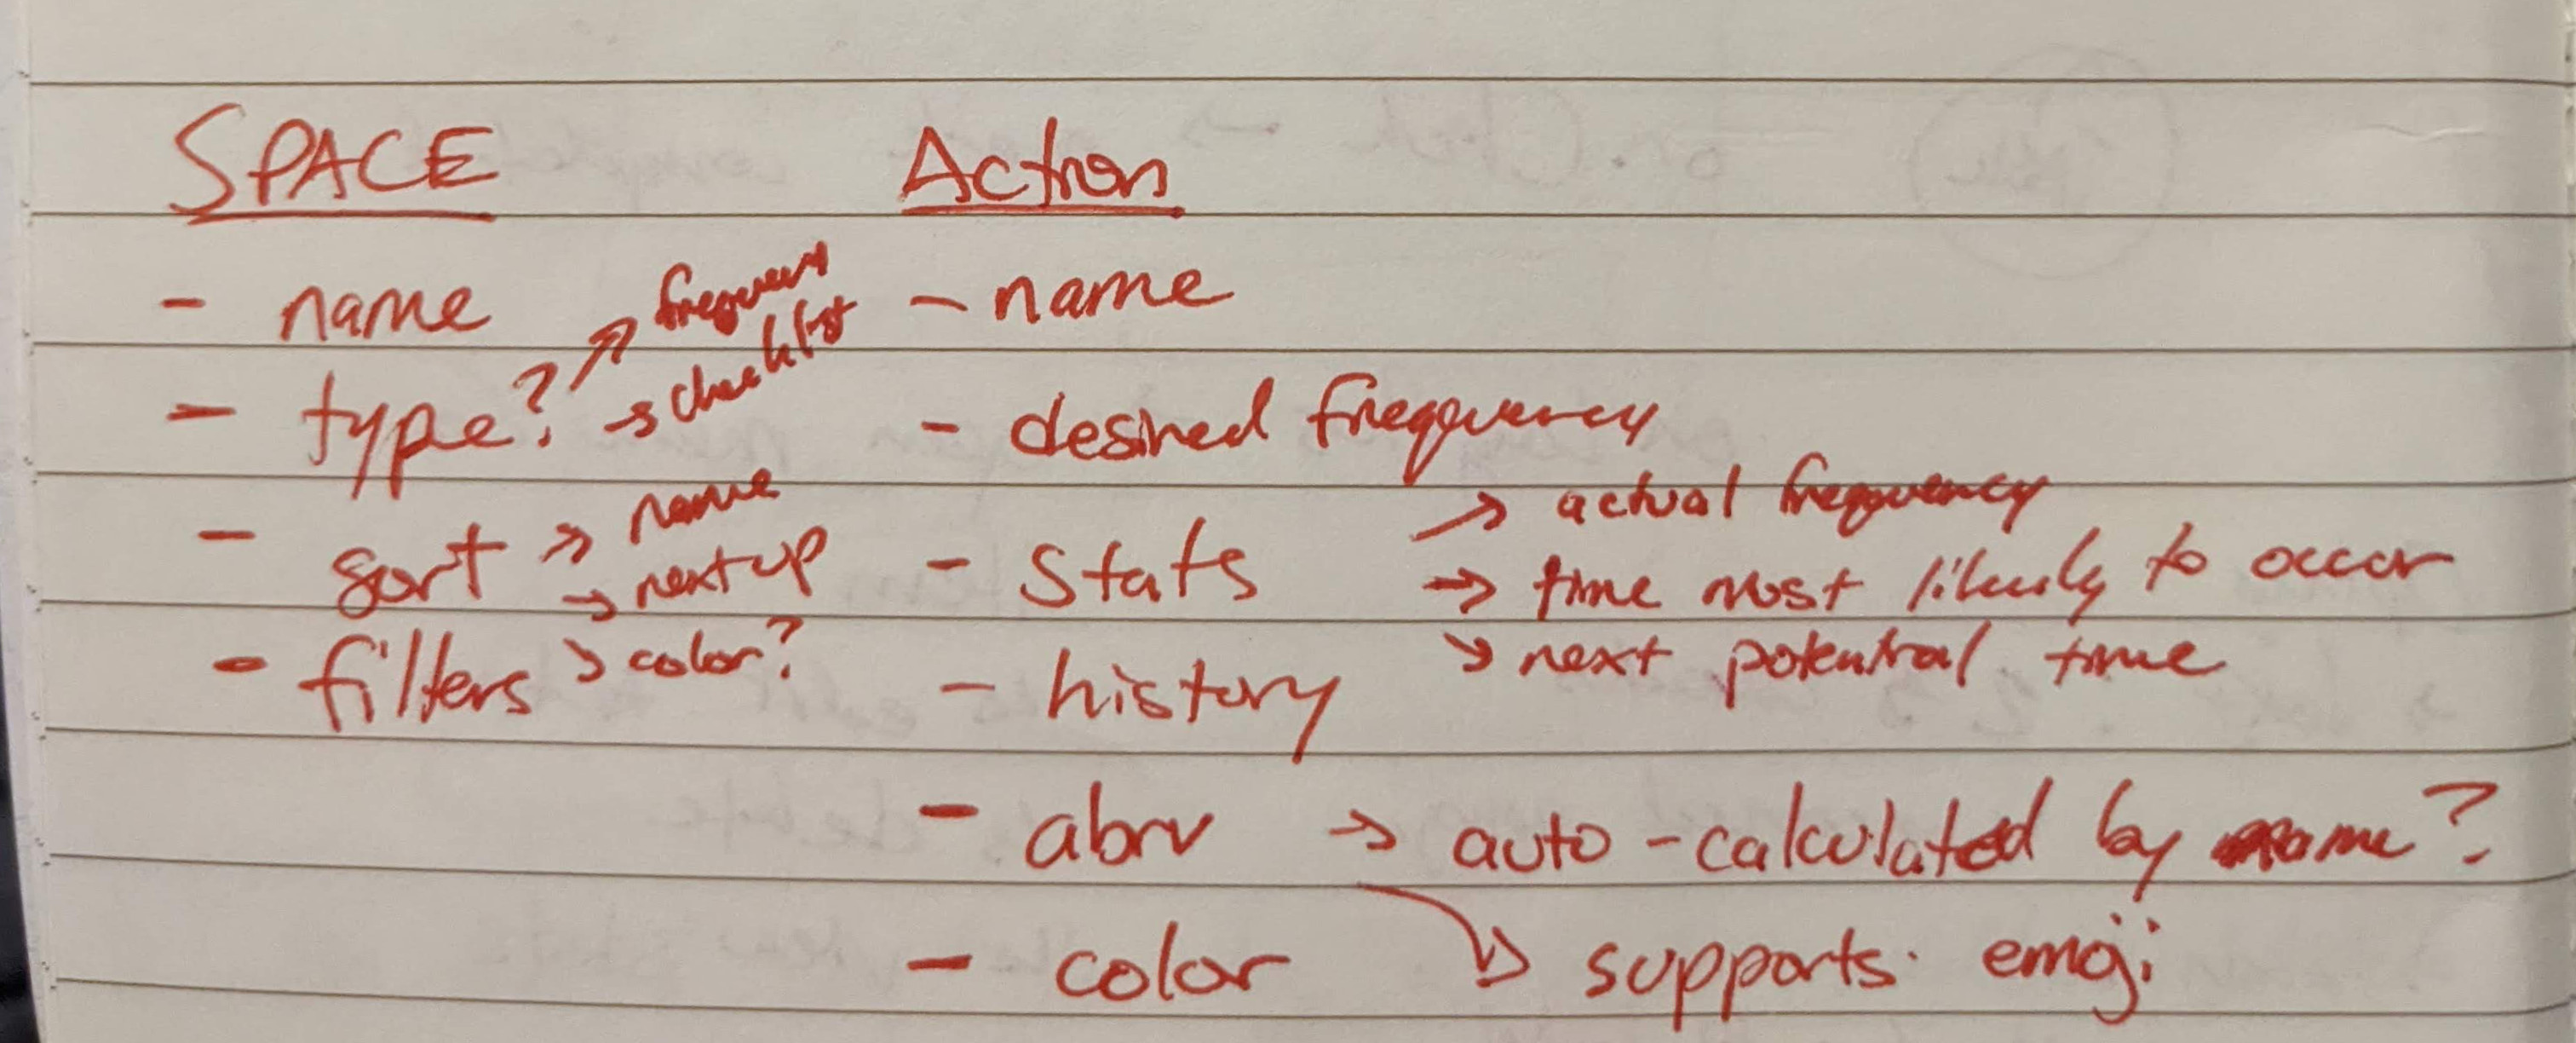 SPACE
- name
- type? → frequency
→ checklist
- sort → name
→ next up
- filters → color?
Action
- name
- desired frequency
- Stats → actual frequency
→ time most likely to occur
→ next potential time
- history
- abrv → auto-calculated by name?
→ supports emoji
- color